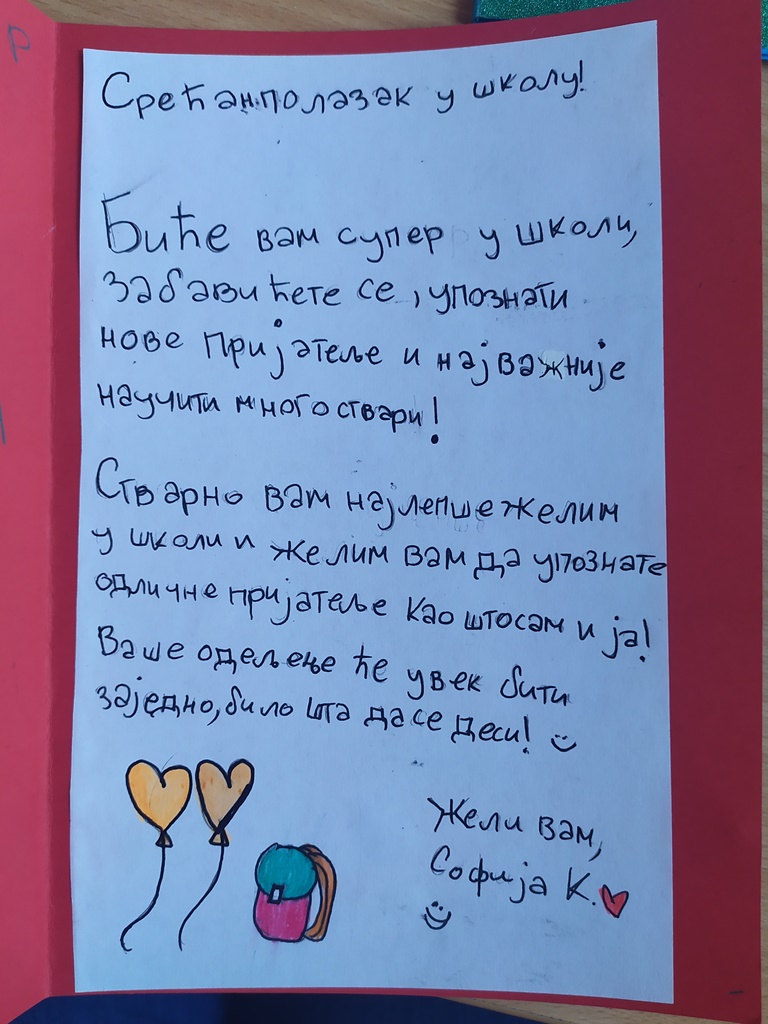 Срећан полазак у школу!
Биће вам супер у школи,
забавићете се, упознати
нове пријатеље и најважније
научити много ствари!
Стварно вам најлепше желим
у школи и желим вам да упознате
одличне пријатеље као што сам и ја!
Ваше одељење ће увек бити
заједно, било шта да се деси!
Жели вам,
Софија К.